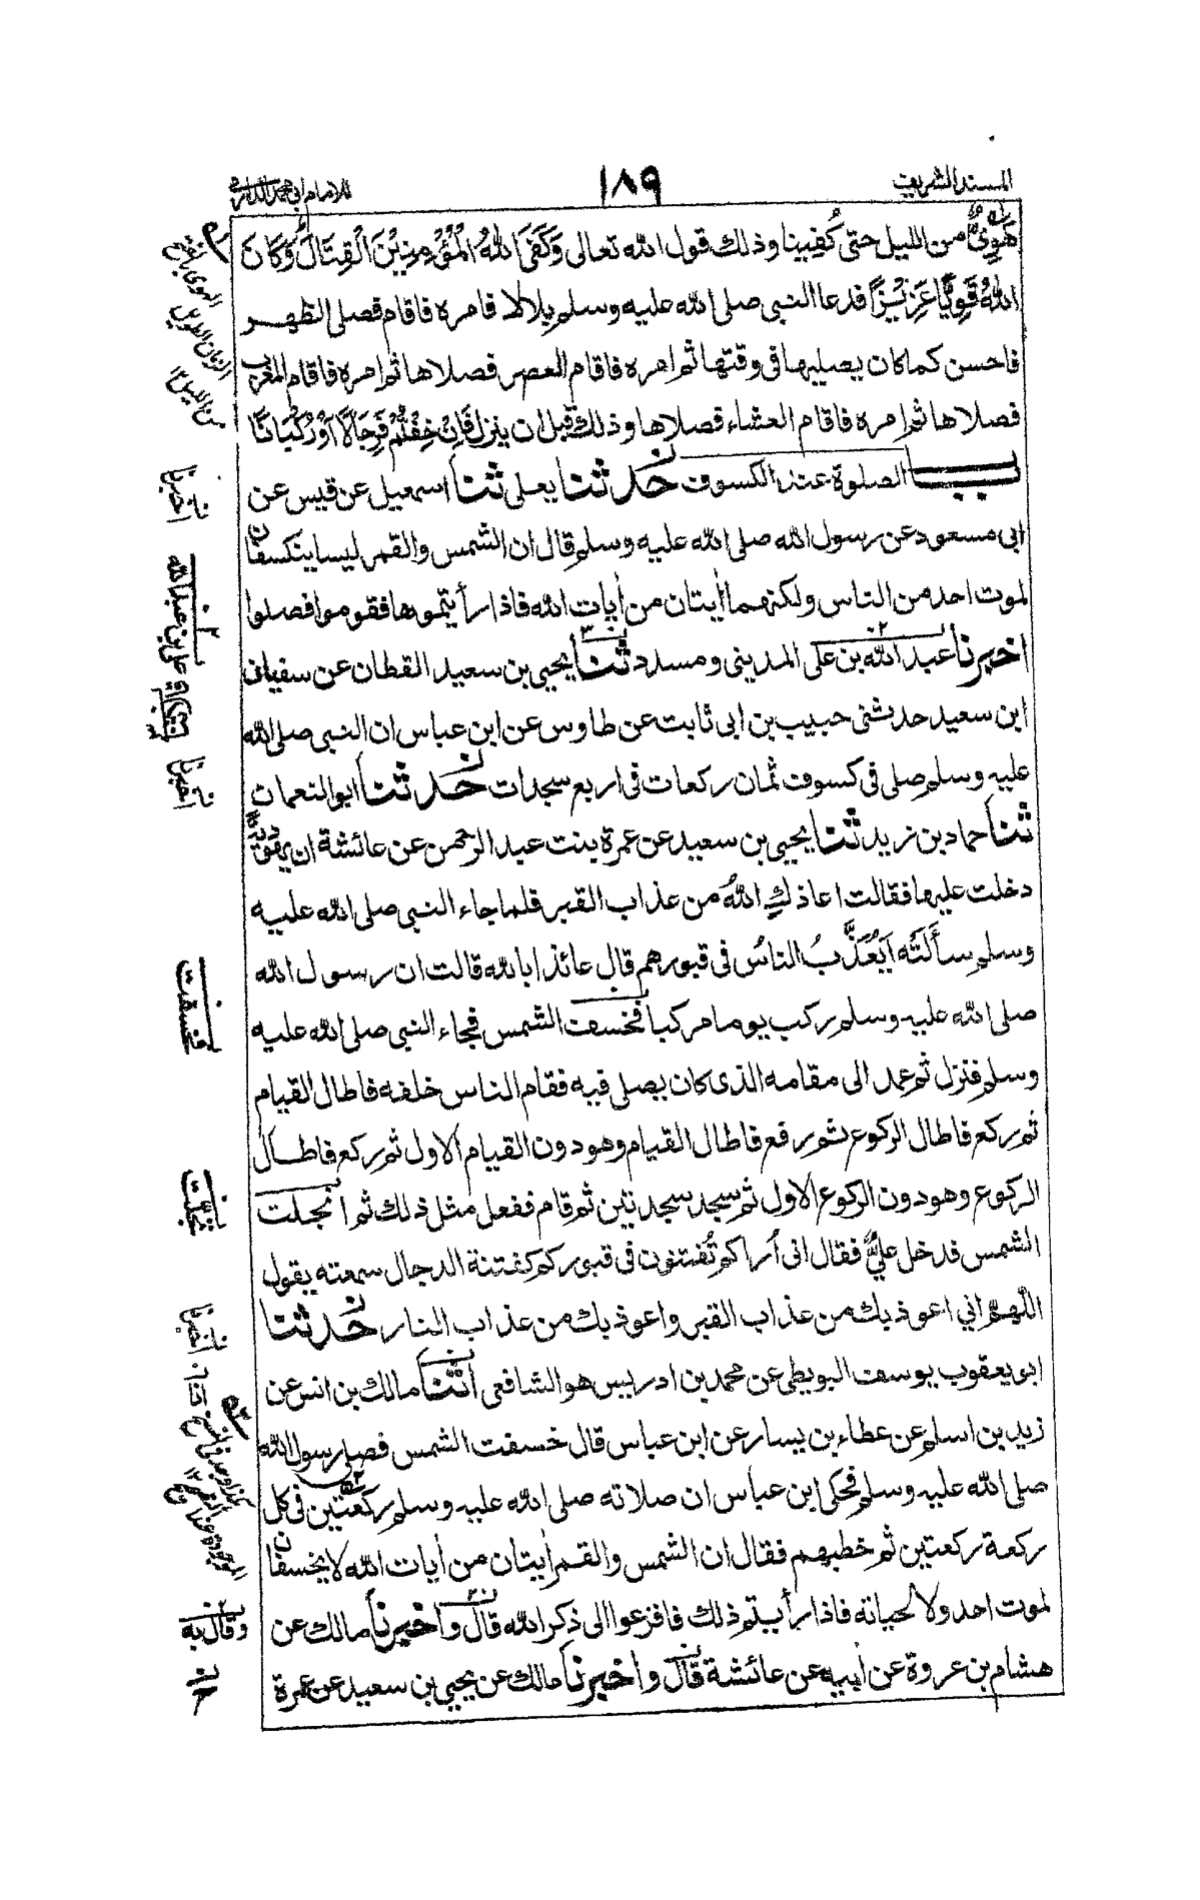 المسند الشريف ١٨٩ للامام ابي محمد الدارمي
هَوِيٌّ من الليل حتى كُفِينا وذلك قول الله تعالى وَكَفَى اللهُ الْمُؤْمِنِيْنَ الْقِتَالَ وَكَانَ
اللهُ قَوِيًّا عَزِيْزًا فدعا النبي صلى الله عليه وسلم بلالا فامره فاقام فصلى الظهر
فاحسن كما كان يصليها في وقتها ثم امره فاقام العصر فصلاها ثم امره فاقام المغرب
فصلاها ثم امره فاقام العشاء فصلاها وذلك قبل ان ينزل فَاِنْ خِفْتُمْ فَرِجَالًا اَوْ رُكْبَانًا
بـــاب الصلوة عند الكسوف حَدثنا يعلى ثنا اسمعيل عن قيس عن
ابي مسعود عن رسول الله صلى الله عليه وسلم قال ان الشمس والقمر ليسا ينكسفان
لموت احد من الناس ولكنهما اٰيتان من اٰيات الله فاذا رأيتموها فقوموا فصلوا
اخبرنا عبد الله بن على المديني ومسدد ثنا يحيى بن سعيد القطان عن سفيان
ابن سعيد حدثنى حبيب بن ابى ثابت عن طاوس عن ابن عباس ان النبي صلى الله
عليه وسلم صلى فى كسوف ثمان ركعات فى اربع سجدات حَدثنا ابو النعمان
ثنا حماد بن زيد ثنا يحيى بن سعيد عن عمرة بنت عبد الرحمن عن عائشة ان يهودية
دخلت عليها فقالت اعاذكِ اللهُ من عذاب القبر فلما جاء النبي صلى الله عليه
وسلم سأَلَتْه اَيُعَذَّبُ الناسُ فى قبورهم قال عائذا بالله قالت ان رسول الله
صلى الله عليه وسلم ركب يوما مركبا فخسفت الشمس فجاء النبى صلى الله عليه
وسلم فنزل ثم عمد الى مقامه الذى كان يصلى فيه فقام الناس خلفه فاطال القيام
ثم ركع فاطال الركوع ثم رفع فاطال القيام وهو دون القيام الاول ثم ركع فاطال
الركوع وهو دون الركوع الاول ثم سجد سجدتين ثم قام ففعل مثل ذلك ثم انجلت
الشمس فدخل عليَّ فقال انى أُراكم تُفتنون فى قبوركم كفتنة الدجال سمعته يقول
اللّهم اني اعوذ بك من عذاب القبر واعوذ بك من عذاب النار حَدثنا
ابو يعقوب يوسف البويطى عن محمد بن ادريس هو الشافعى انثنا مالك بن انس عن
زيد بن اسلم عن عطاء بن يسار عن ابن عباس قال خسفت الشمس فصلى رسول الله
صلى الله عليه وسلم فحكى ابن عباس ان صلاته صلى الله عليه وسلم ركعتين فى كل
ركعة ركعتين ثم خطبهم فقال ان الشمس والقمر اٰيتان من اٰيات الله لا يخسفان
لموت احد ولا لحياته فاذا رأيتم ذلك فافزعوا الى ذكر الله قال واخبرنا مالك عن
هشام بن عروة عن ابيه عن عائشة قال واخبرنا مالك عن يحيى بن سعيد عن عمرة
الهوى بالفتح
الزمان الطويل
من الليل ١٢
اخبرنا
على بن عبد الله
اخبرنا
فخسفت
تجلت
اخبرنا
وقال به